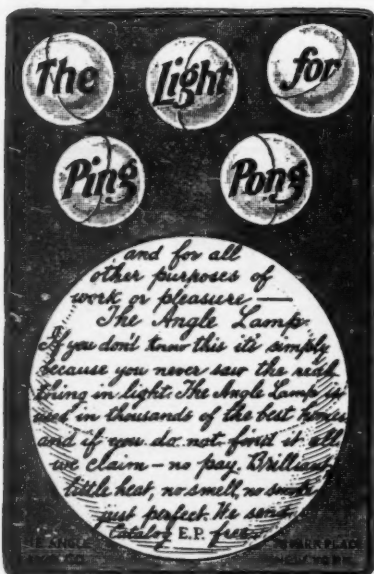 The Light for
Ping Pong
and for all
other purposes of
work or pleasure —
The Angle Lamp
If you don't know this its simply
because you never saw the real
thing in light. The Angle Lamp is
used in thousands of the best homes
and if you do not find it all
we claim – no pay. Brilliant,
little heat, no smell, no smoke
just perfect. We send
Catalog E.P. free.
THE ANGLE PARK PLACE
NEW YORK